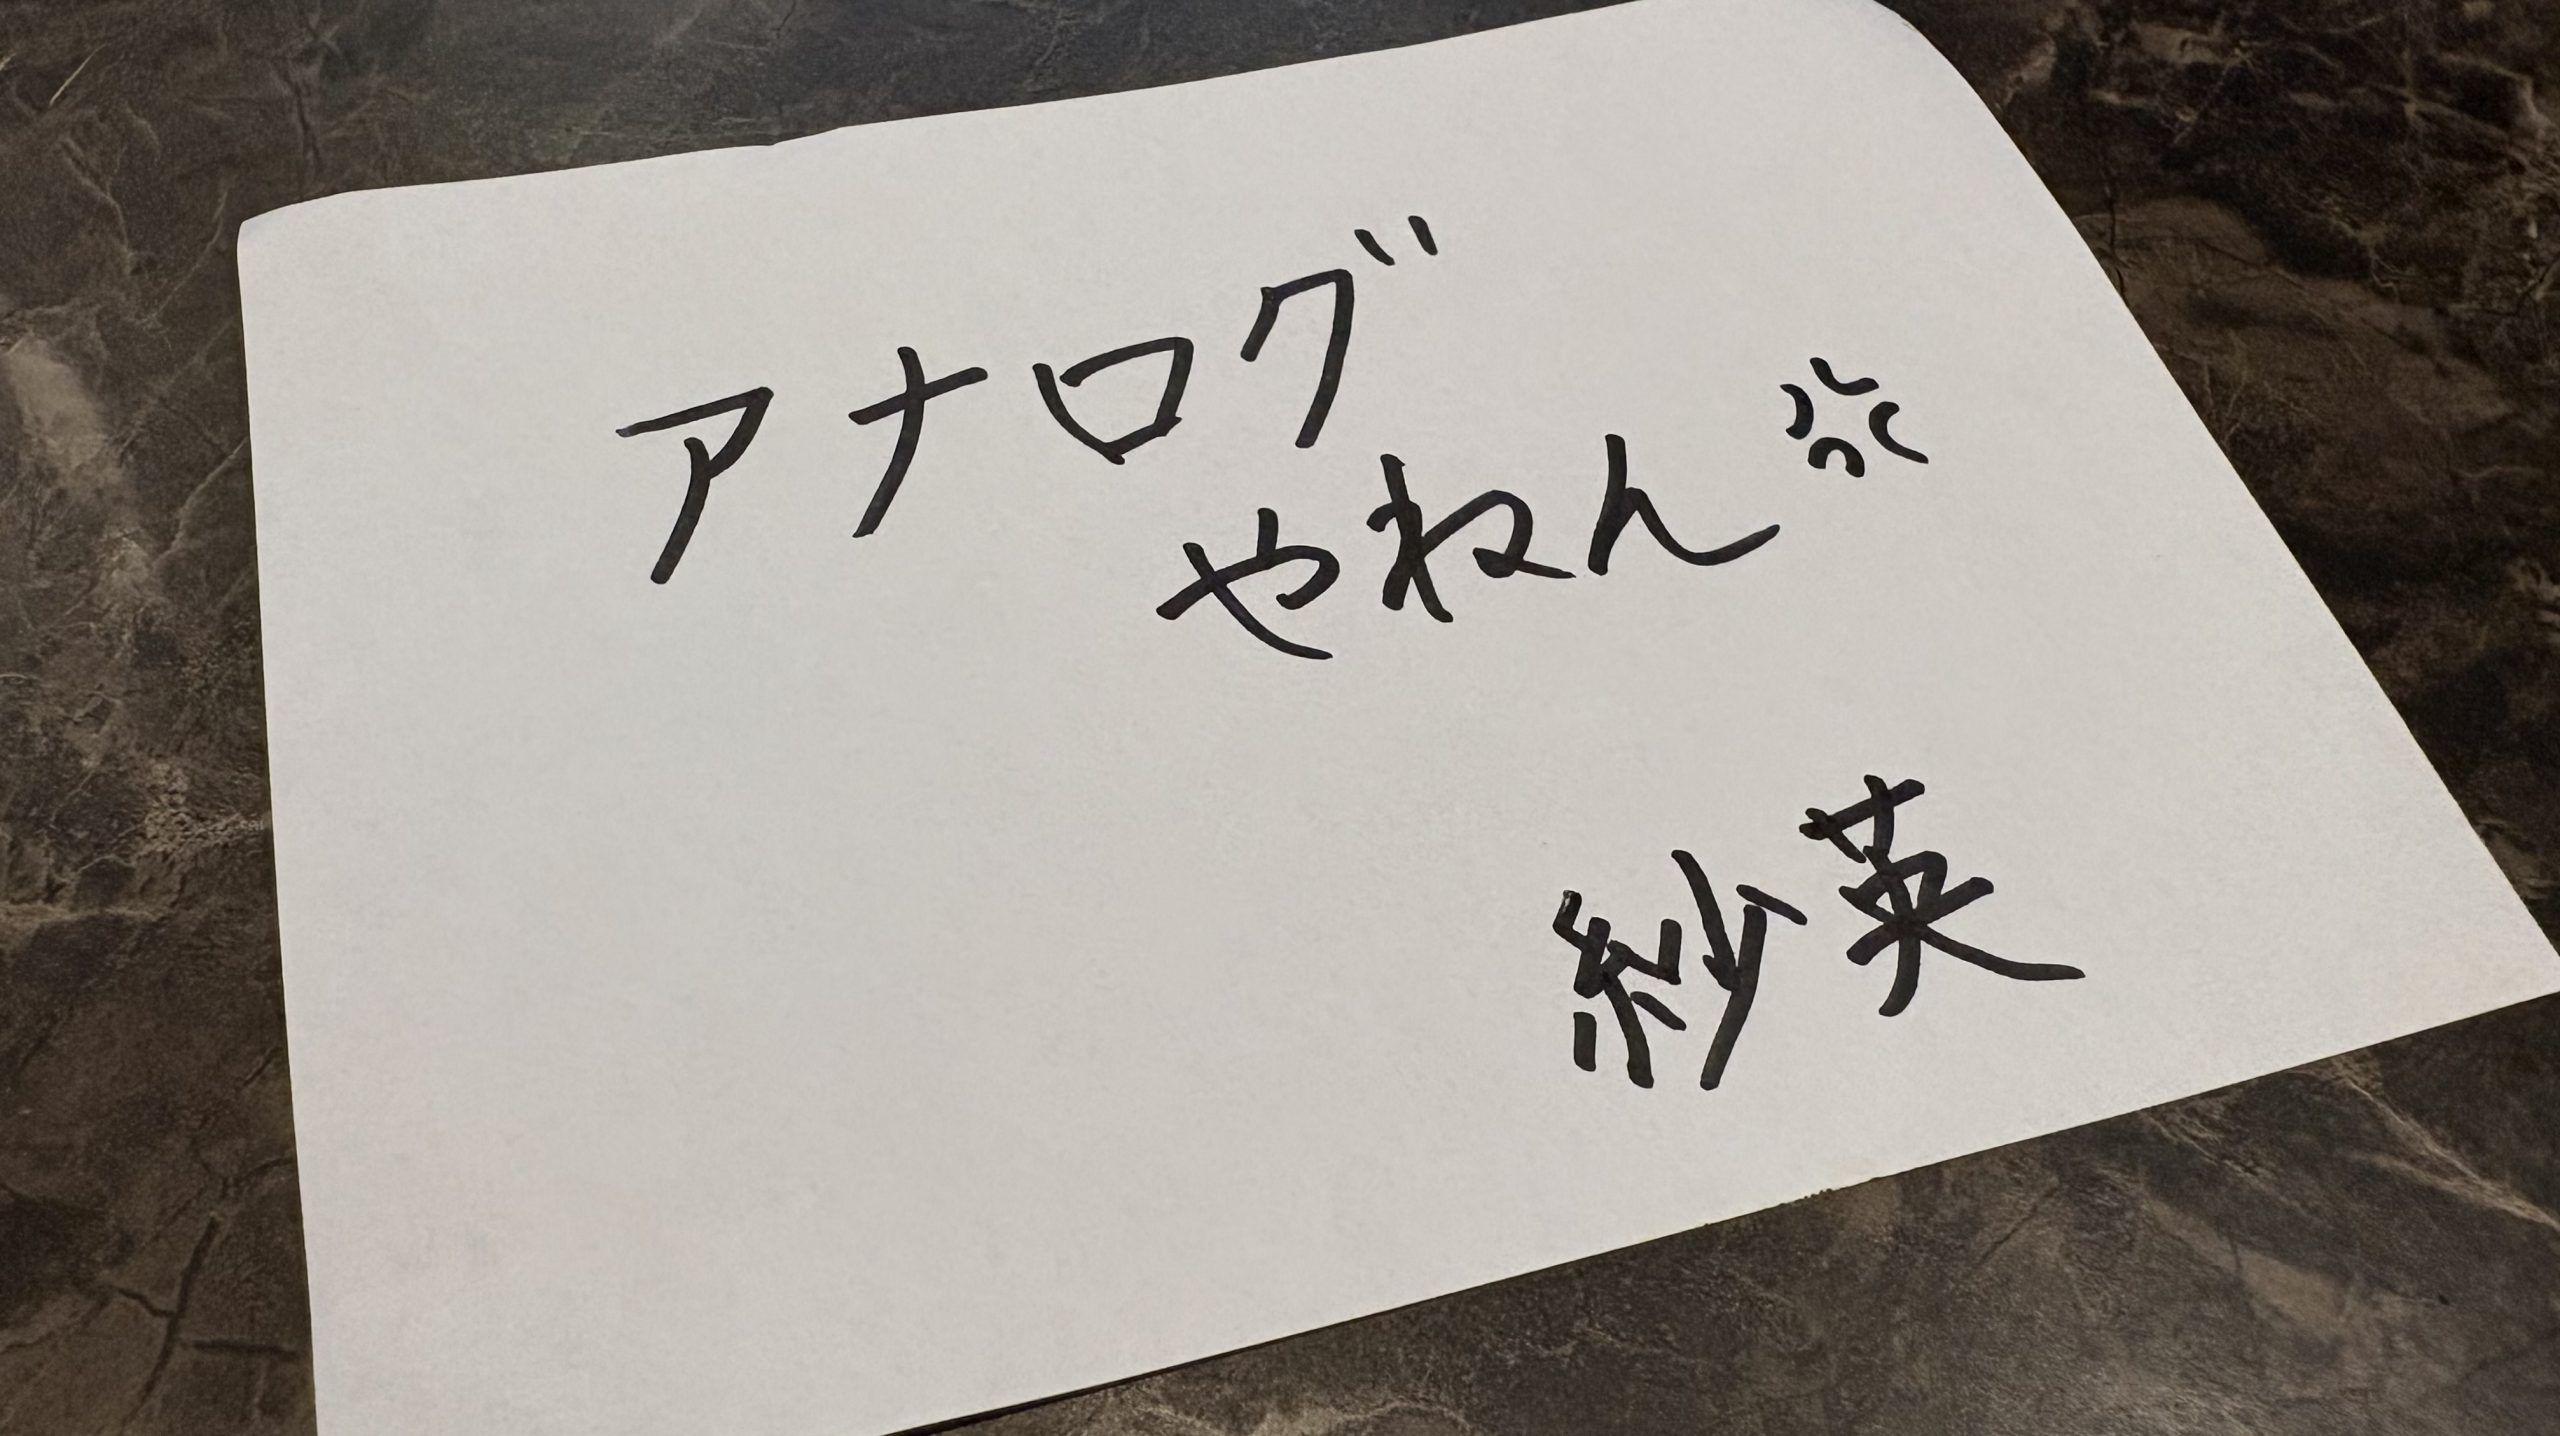 アナログ
やねん💢
紗英